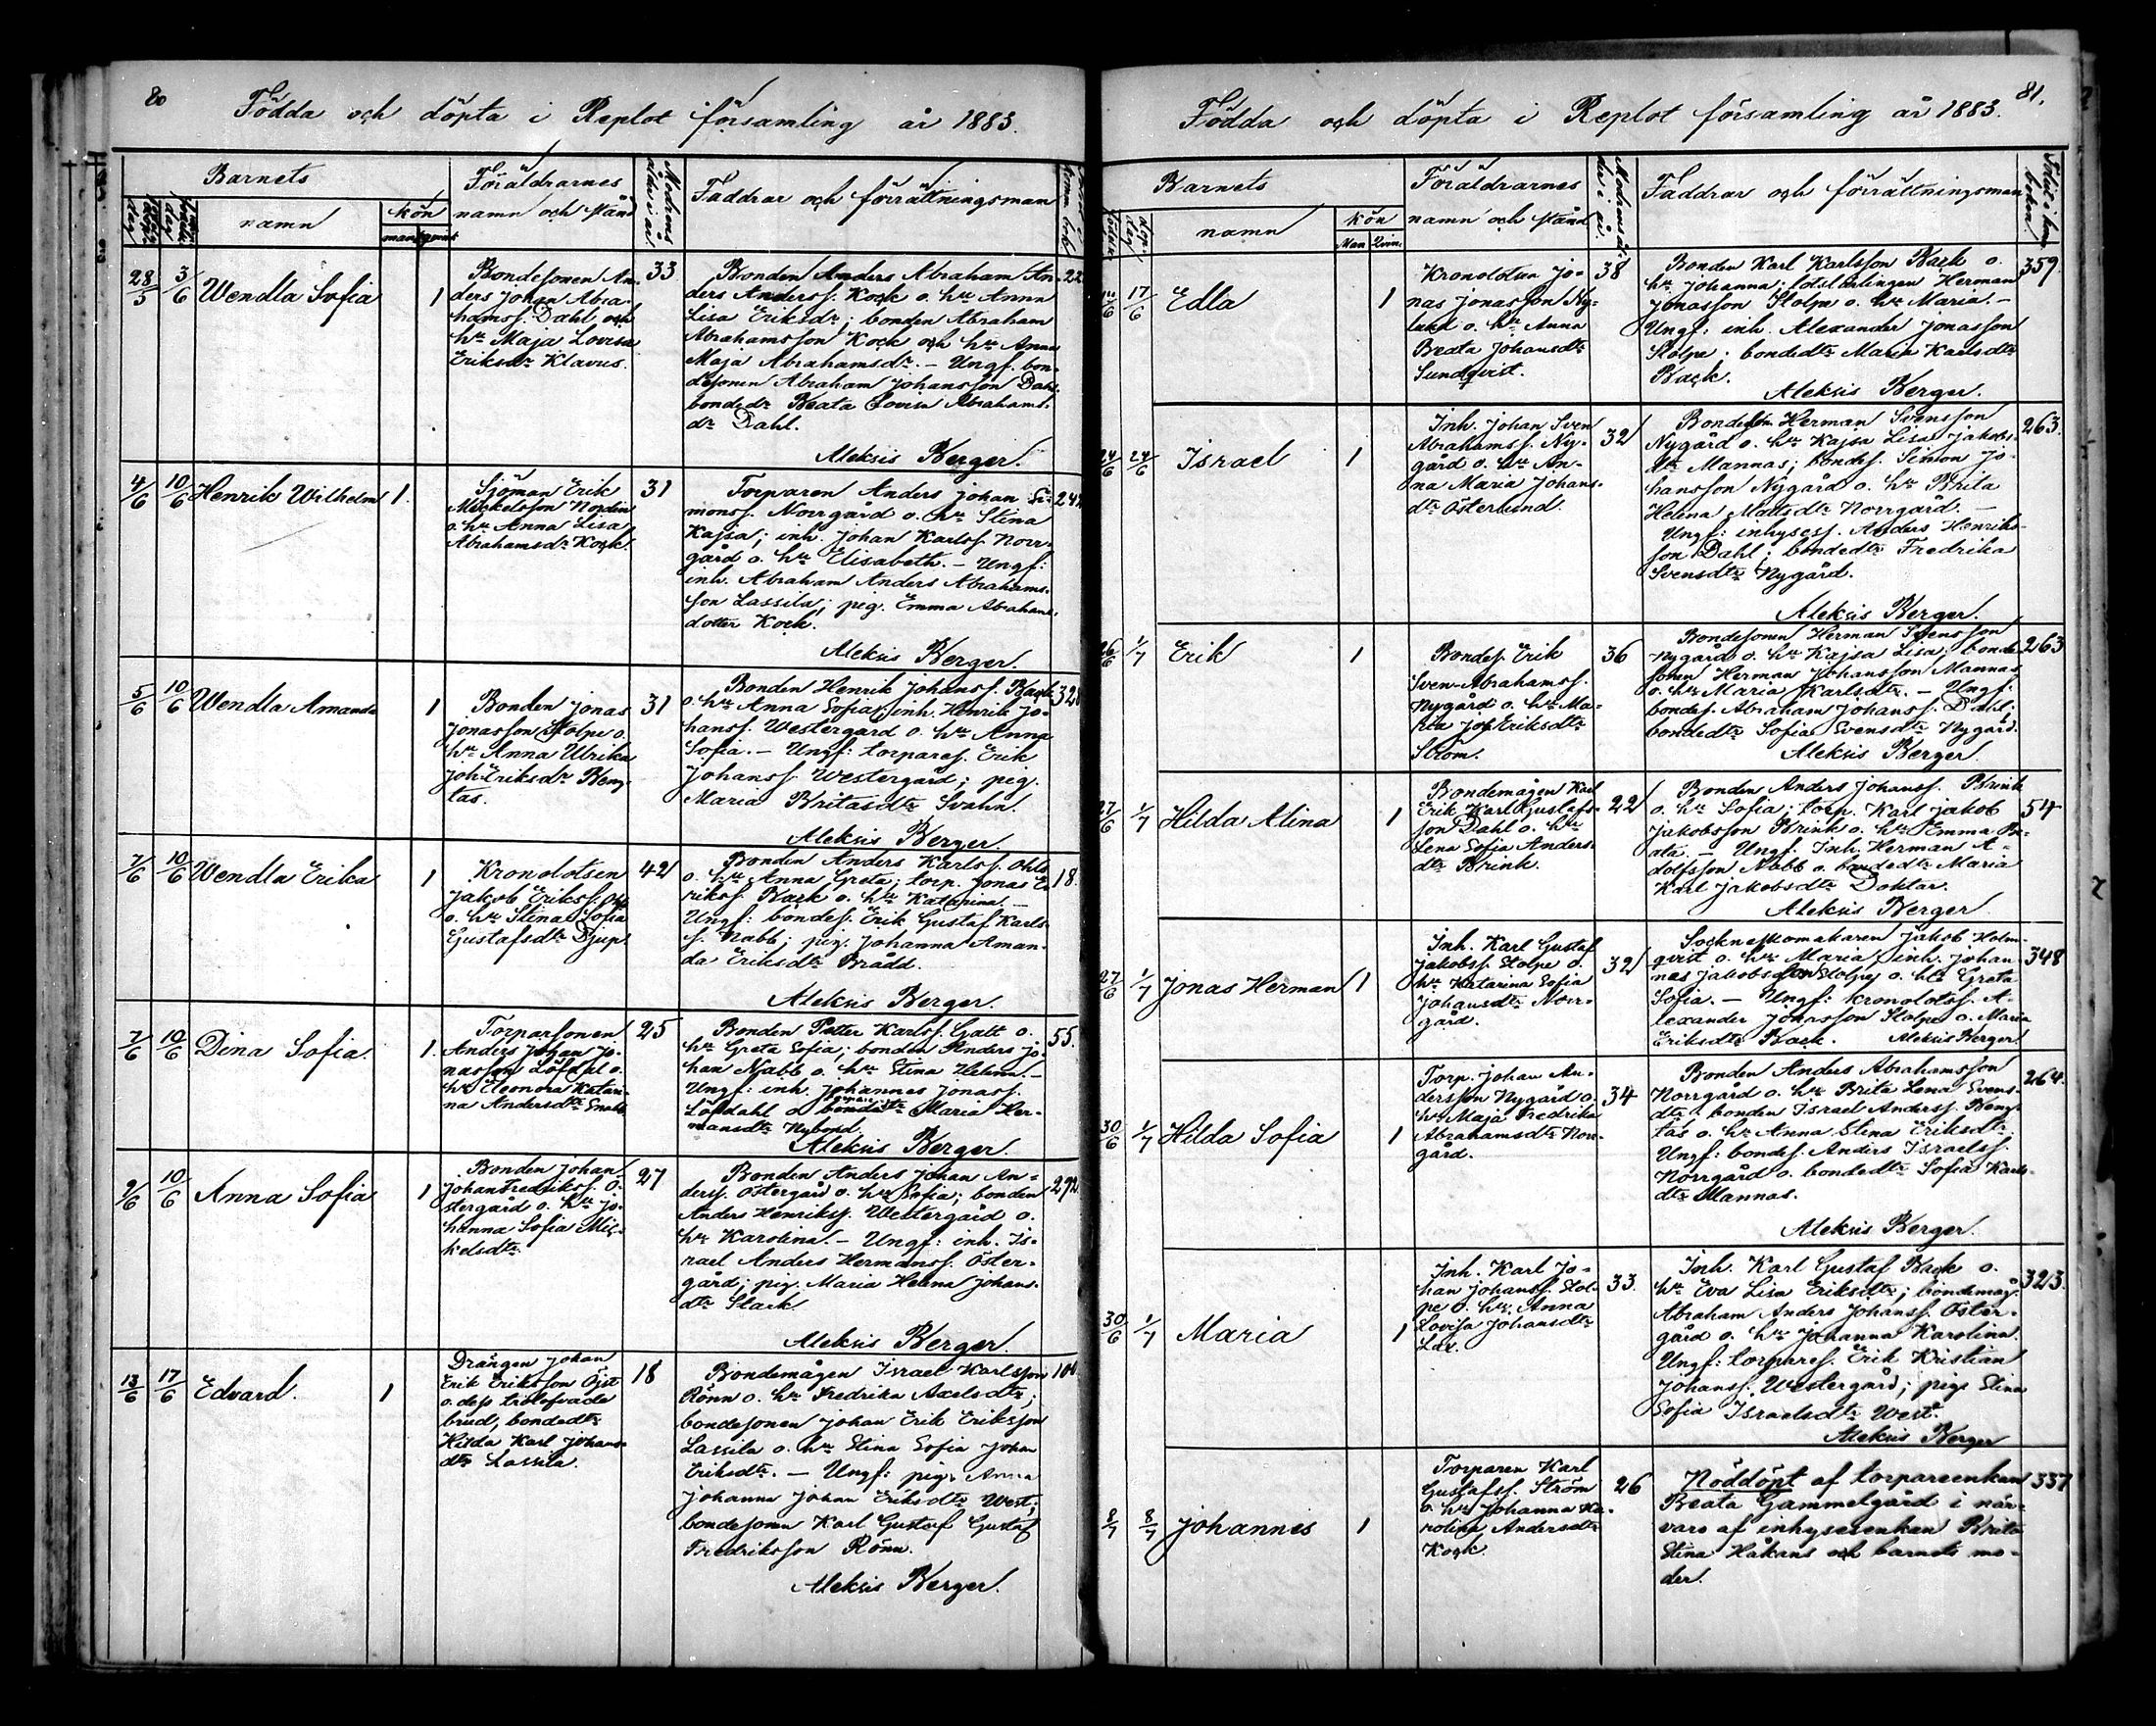 80
Födda och döpta i Replot församling år 1883.
Barnets
namn
kön
man qvink
Föräldrarnes
namn och stånd
Modrens
ålder i år.
Faddrar och förrättningsman
28/5 3/6 Wendla Sofia 1
Bondesonen An-
ders Johan Abra-
hamss. Dahl och
hu Maja Lovisa
Eriksdr Klavus.
33
Bonden Anders Abraham An-
ders Anderss. Kock o. hu Anna
Lisa Eriksdr; bonden Abraham
Abrahamsson Kock och hu Anna
Maja Abrahamsdr. - Ungf. bon-
desonen Abraham Johansson Dahl,
bondedr Beata Lovisa Abrahams-
dr Dahl.
Aleksis Berger.
22
4/6 10/6 Henrik Wilhelm 1.
Sjöman Erik
Mickelsson Nordin
o. hu Anna Lisa
Abrahamsdr Kock.
31
Torparen Anders Johan Si-
monss. Norrgård o. hu Stina
Kajsa; inh. Johan Karlss. Norr-
gård o. hu Elisabeth. - Ungf:
inh. Abraham Anders Abrahams-
son Lassila; pig. Emma Abrahams-
dotter Kock.
Aleksis Berger.
242
5/6 10/6 Wendla Amanda 1
Bonden Jonas
Jonasson Stolpe o.
hu Anna Ulrika
Joh. Eriksdr Beng-
tas.
31
Bonden Henrik Johanss. Back
o. hu Anna Sofia; inh. Henrik Jo-
hanss. Westergård o. hu Anna
Sofia. - Ungf: torpares. Erik
Johanss. Westergård; pig.
Maria Britasdtr Svahn.
Aleksis Berger.
328
7/6 10/6 Wendla Erika 1
Kronolotsen
Jakob Erikss.
o. hu Stina Sofia
Gustafsdtr Djup.
42
Bonden Anders Karlss. Ohls
o. hu Anna Greta; torp. Jonas E-
rikss. Back o. hu Katarina. -
Ungf: bondes. Erik Gustaf Karls-
s. Nabb; pig. Johanna Aman-
da Eriksdtr Brådd.
Aleksis Berger.
18.
7/6 10/6 Dina Sofia. 1.
Torparsonen
Anders Johan Jo-
nasson Löfdahl o.
hu Eleonora Katari-
na Andersdtr
25
Bonden Petter Karlss. Gatt o.
hu Greta Sofia; bonden Anders Jo-
han Nabb o. hu Stina Helena. -
Ungf: inh. Johannes Jonass.
Löfdahl o bondedtr Maria Her-
mansdtr Nybond.
Aleksis Berger.
55.
9/6 10/6 Anna Sofia 1
Bonden Johan
Johan Fredrikss. Ö-
stergård o. hu Jo-
hanna Sofia Mic-
kelsdtr.
27
Bonden Anders Johan An-
derss. Östergård o. hu Sofia; bonden
Anders Henrikss. Westergård o.
hu Karolina. - Ungf: inh. Is-
rael Anders Hermanss. Öster-
gård; pig. Maria Helena Johans-
dtr Slark.
Aleksis Berger.
292
13/6 17/6 Edvard. 1
Drängen Johan
Erik Eriksson Öjst
o. dess trolofvade
brud, bondedtr
Hilda Karl Johans-
dtr Lassila.
18
Bondemågen Israel Karlsson
Rönn o. hu Fredrika Axelsdtr;
bondesonen Johan Erik Eriksson
Lassila o. hu Stina Sofia Johan
Eriksdtr. - Ungf: pig. Anna
Johanna Johan Eriksdtr West;
bondesonen Karl Gustaf Gustaf
Fredriksson Rönn.
Aleksis Berger.
81.
Födda och döpta i Replot församling år 1883.
Barnets
namn
kön
Man Qvin.
Föräldrarnes
namn och stånd
Modrens ål-
der i år.
Faddrar och förrättningsman
14/6 17/6 Edla 1
Kronolotsen Jo-
nas Jonasson Ny-
lund o. hu Anna
Beata Johansdtr
Sundqvist.
38
Bonden Karl Karlsson Back o.
hu Johanna; lotslärlingen Herman
Jonasson Stolpe o. hu Maria. -
Ungf: inh. Alexander Jonasson
Stolpe; bondedtr Maria Karlsdtr
Back.
Aleksis Berger.
359.
24/6 24/6 Israel 1
Inh. Johan Sven
Abrahamss. Ny-
gård o. hu An-
na Maria Johans-
dtr Österlund.
32
Bondeson Herman Svensson
Nygård o. hu Kajsa Lisa Jakobs-
dtr Mannas; bondes. Simon Jo-
hansson Nygård o. hu Brita
Helena Matsdtr Norrgård. -
Ungf: inhysess. Anders Henriks-
son Dahl; bondedtr Fredrika
Svensdtr Nygård.
Aleksis Berger.
263.
26/6 1/7 Erik 1
Bondes. Erik
Sven-Abrahamss.
Nygård o. hu Ma-
ria Joh. Eriksdtr
Ström.
36
Bondesonen Herman Svensson
Nygård o. hu Kajsa Lisa; bonde-
sonen Herman Johansson Mannas
o. hu Maria Karlsdtr. - Ungf:
bondes. Abraham Johanss. Dahl;
bondedtr Sofia Svensdtr Nygård.
Aleksis Berger.
263
27/6 1/7 Hilda Alina 1
Bondemågen Karl
Erik Karl Gustafs-
son Dahl o. hu
Lena Sofia Anders-
dtr Brink.
22
Bonden Anders Johanss. Brink
o. hu Sofia; torp. Karl Jakob
Jakobsson Brink o. hu Emma Be-
ata. - Ungf: Inh. Herman A-
dolfsson Nabb o. bondedtr Maria
Karl Jakobsdtr Doktar.
Aleksis Berger.
54
27/6 1/7 Jonas Herman 1
Inh. Karl Gustaf
Jakobss. Stolpe o.
hu Katarina Sofia
Johansdtr Norr-
gård.
32
Sockneskomakaren Jakob Holm-
qvist o. hu Maria; inh. Johan-
nes Jakobsson Stolpe o. hu Greta
Sofia. - Ungf: kronolotss. A-
lexander Jonasson Stolpe o. Maria
Eriksdtr Back. Aleksis Berger.
348
30/6 1/7 Hilda Sofia 1
Torp. Johan An-
dersson Nygård o.
hu Maja Fredrika
Abrahamsdtr Norr-
gård.
34
Bonden Anders Abrahamsson
Norrgård o. hu Brita Lena Svens-
dtr; bonden Israel Anderss. Beng-
tas o. hu Anna Stina Eriksdtr.
Ungf: bondes. Anders Israelss.
Norrgård o. bondedtr Sofia Karls-
dtr Mannas.
Aleksis Berger.
264.
30/6 1/7 Maria 1
Inh. Karl Jo-
han Johanss. Stol-
pe o. hu Anna
Lovisa Johansdtr
Lax.
33.
Inh. Karl Gustaf Back o.
hu Eva Lisa Eriksdtr; bondemåg.
Abraham Anders Johanss. Öster-
gård o. hu Johanna Karolina.
Ungf: torpares. Erik Kristian
Johanss. Westergård; pig. Stina
Sofia Israelsdtr West.
Aleksis Berger
323.
8/7 8/7 Johannes 1
Torparen Karl
Gustafss. Ström
o. hu Johanna Ka-
rolina Andersdtr
Kock.
26
Nöddöpt af torpareenkan
Beata Gammelgård i när-
varo af inhysesenkan Brita
Stina Håkans och barnets mo-
der.
337